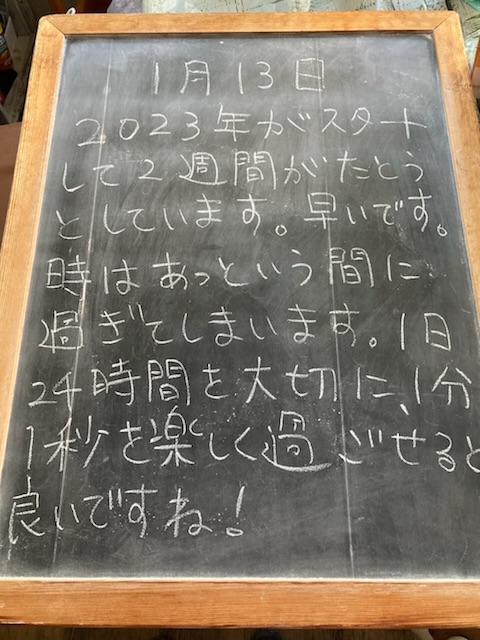 1月13日
2023年がスタート
して2週間がたとう
としています。早いです。
時はあっという間に
過ぎてしまいます。1日
24時間を大切に、1分
1秒を楽しく過ごせると
良いですね!